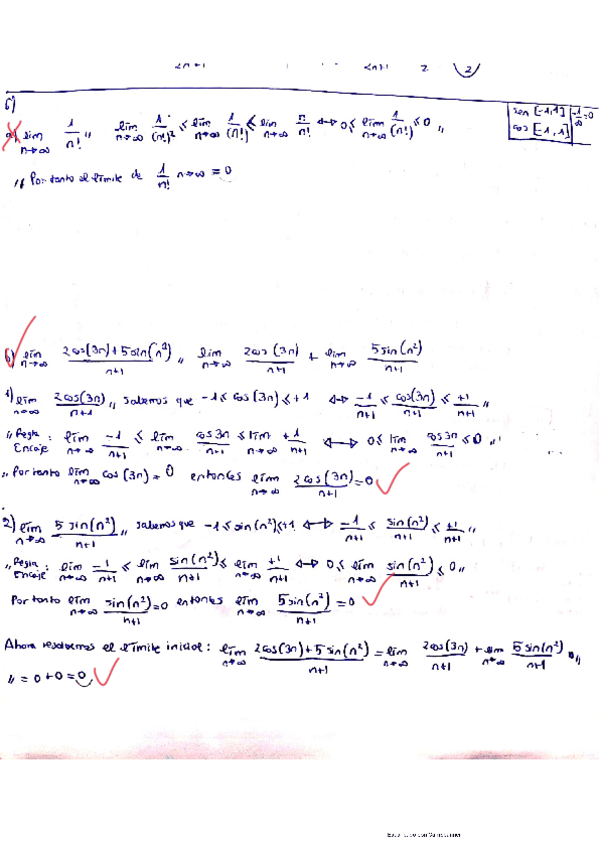 2n+1 2n+1 2 2
6)
a) lim n→∞ 1/n! ,, lim n→∞ 1/(n!)² ≤ lim n→∞ 1/(n!) ≤ lim n→∞ n/n! ↔ 0 ≤ lim n→∞ 1/(n!) ≤ 0 ,,
sen [-1,1] -1/∞=0
cos [-1,1]
,, Por tanto el límite de 1/n! n→∞ = 0
b) lim n→∞ 2cos(3n)+5sin(n²)/n+1 ,, lim n→∞ 2cos(3n)/n+1 + lim n→∞ 5sin(n²)/n+1
1) lim n→∞ 2cos(3n)/n+1 ,, sabemos que -1 ≤ cos(3n) ≤ +1 ↔ -1/n+1 ≤ cos(3n)/n+1 ≤ +1/n+1 ,,
,, Regla Encaje: lim n→∞ -1/n+1 ≤ lim n→∞ cos3n/n+1 ≤ lim n→∞ +1/n+1 ↔ 0 ≤ lim n→∞ cos3n/n+1 ≤ 0 ,,
,, Por tanto lim n→∞ cos(3n) = 0 entonces lim n→∞ 2cos(3n)/n+1 = 0
2) lim n→∞ 5sin(n²)/n+1 ,, sabemos que -1 ≤ sin(n²) ≤ +1 ↔ -1/n+1 ≤ sin(n²)/n+1 ≤ +1/n+1 ,,
,, Regla Encaje: lim n→∞ -1/n+1 ≤ lim n→∞ sin(n²)/n+1 ≤ lim n→∞ +1/n+1 ↔ 0 ≤ lim n→∞ sin(n²)/n+1 ≤ 0 ,,
Por tanto lim n→∞ sin(n²)/n+1 = 0 entonces lim n→∞ 5sin(n²)/n+1 = 0
Ahora resolvemos el límite inicial: lim n→∞ 2cos(3n)+5sin(n²)/n+1 = lim n→∞ 2cos(3n)/n+1 + lim n→∞ 5sin(n²)/n+1 ,,
,, = 0+0 = 0